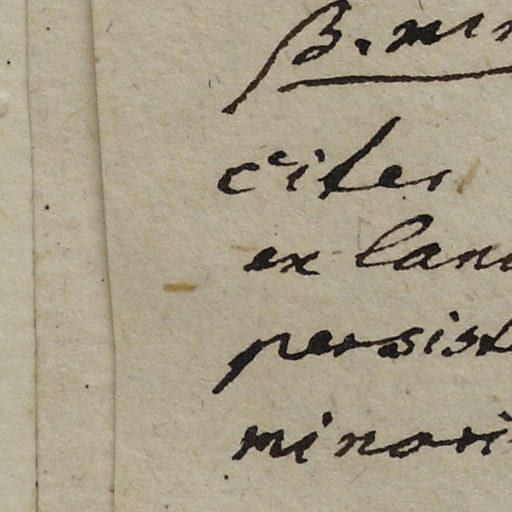 β. min
citer
ex lan
persist
minori